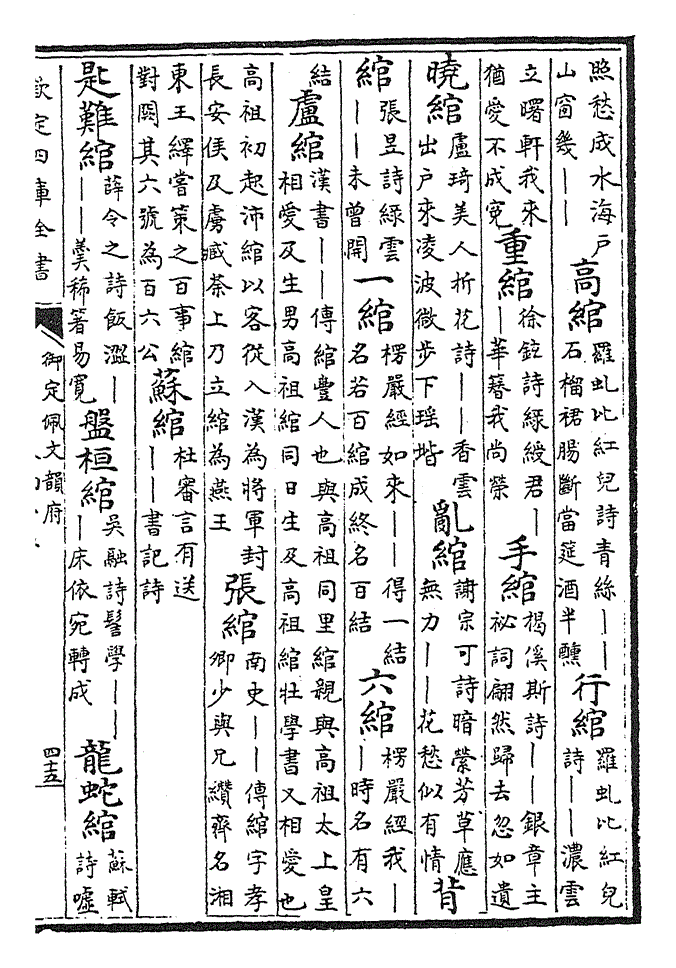 照愁成水海戶山窗幾｜｜高綰羅虬比紅兒詩青絲｜｜石榴裙腸斷當筵酒半醺行綰羅虬比紅兒詩｜｜濃雲
立曙軒我來猶愛不成寃重綰徐鉉詩綠綬君｜｜華簪我尚榮手綰揭傒斯詩｜｜銀章主祕詞翩然歸去忽如遺
曉綰盧琦美人折花詩｜｜香雲出戶來凌波微步下瑶堦亂綰謝宗可詩暗縈芳草應無力｜｜花愁似有情背
綰張昱詩綠雲｜｜未曾開一綰楞嚴經如來｜｜得一結名若百綰成終名百結六綰楞嚴經我｜｜時名有六
結盧綰漢書｜｜傳綰豐人也與高祖同里綰親與高祖太上皇相愛及生男高祖綰同日生及高祖綰壯學書又相愛也
高祖初起沛綰以客從入漢為將軍封長安侯及虜臧荼上乃立綰為燕王張綰南史｜｜傳綰字孝卿少與兄纘齊名湘
東王繹嘗策之百事綰對闕其六號為百六公蘇綰杜審言有送｜｜書記詩
匙難綰薛令之詩飯澀｜｜｜羹稀箸易寛盤桓綰吳融詩髻學｜｜｜床依宛轉成龍蛇綰蘇軾詩噓
欽定四庫全書
御定佩文韻府
四十五